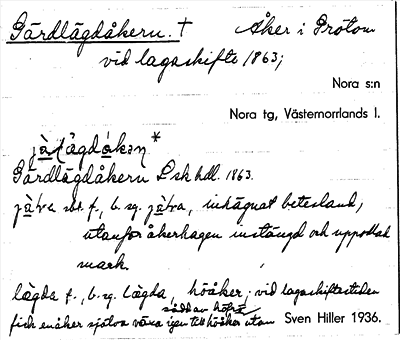 Gärdlägdåkern. † Åker i Grötom
vid lagaskifte 1863;
Nora s:n
Nora tg, Västernorrlands l.
Gärdlägdåkern Lsk hdl. 1863.
sbt. f., b. sg. inhägnat betesland,
utanför åkerhagen instängd och uppodlad
mark.
lägda f., b. sg. lägda, höåker; vid lagaskiftestiden
sådd av höfrö
fick en åker själva växa igen till höåker utan Sven Hiller 1936.